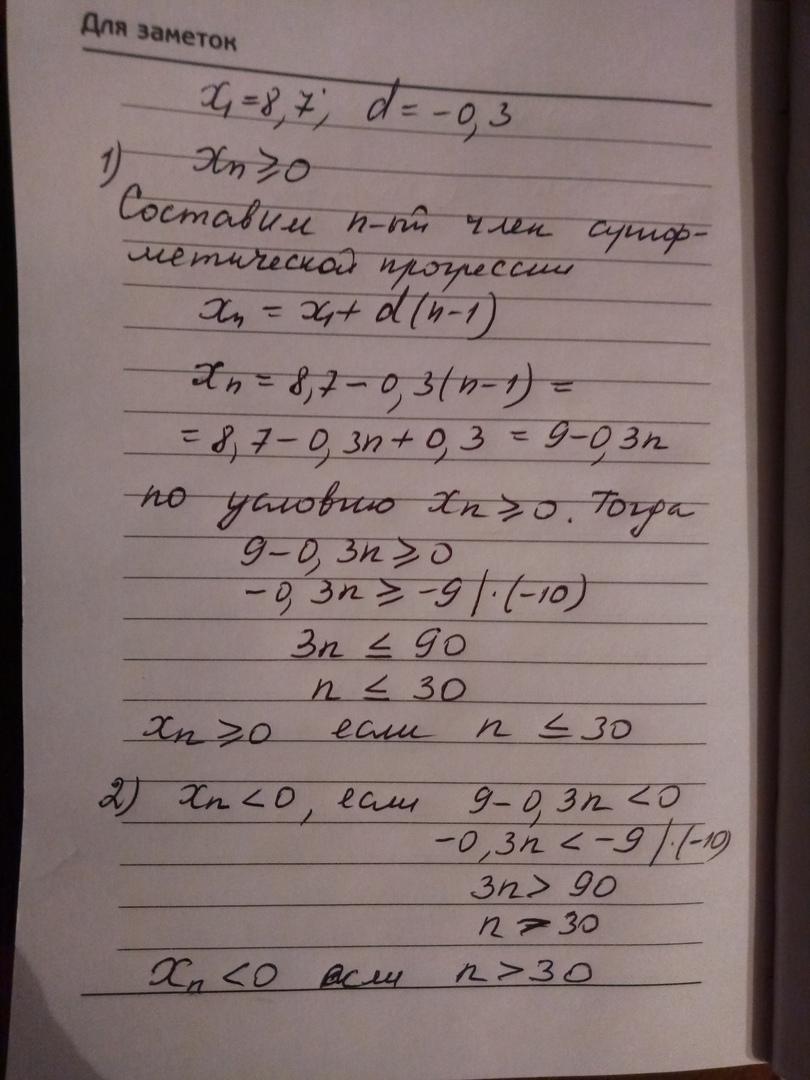 Для заметок
x₁=8,7; d=-0,3
1) xₙ⩾0
Составим n-ый член ариф-
метической прогрессии
xₙ = x₁+ d(n-1)
xₙ = 8,7-0,3(n-1) =
= 8,7-0,3n+0,3 = 9-0,3n
по условию xₙ⩾0. Тогда
9-0,3n⩾0
-0,3n⩾-9|·(-10)
3n ≤ 90
n ≤ 30
xₙ⩾0 если n ≤30
2) xₙ<0, если 9-0,3n<0
-0,3n<-9|·(-10)
3n> 90
n > 30
xₙ<0 если n>30